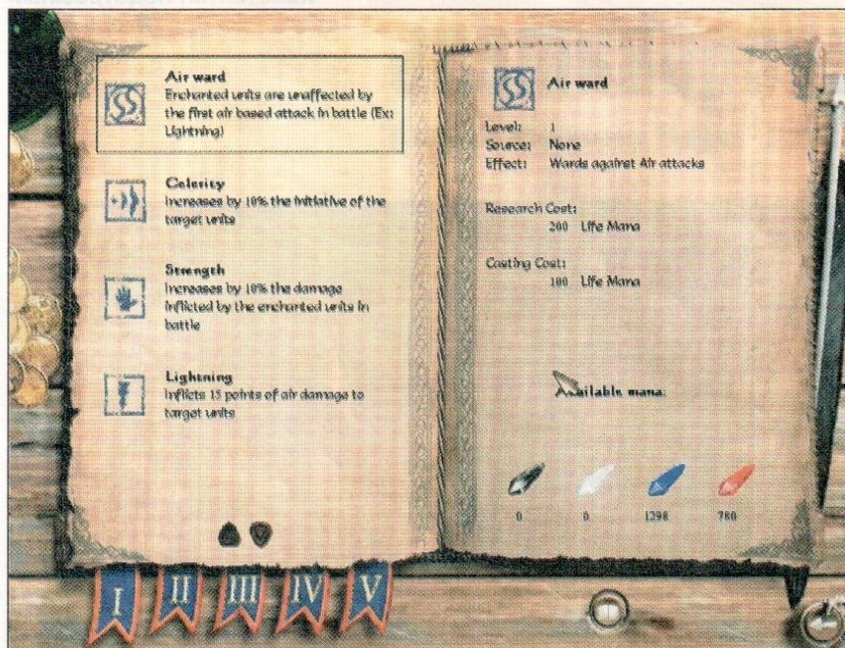 Air ward
Enchanted units are unaffected by
the first air based attack in battle (Ex:
Lightning)
Celerity
Increases by 10% the initiative of the
target units
Strength
Increases by 10% the damage
inflicted by the enchanted units in
battle
Lightning
Inflicts 15 points of air damage to
target units
I II III IV V
Air ward
Level: 1
Source: None
Effect: Wards against Air attacks
Research Cost:
200 Life Mana
Casting Cost:
100 Life Mana
Available mana:
0 0 1298 780